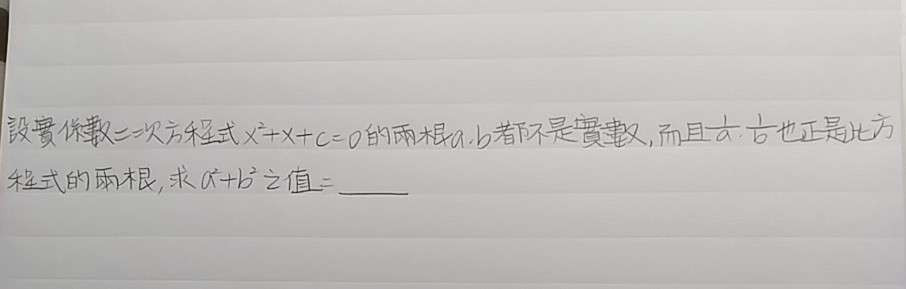 設實係數二次方程式x²+x+c=0的兩根a.b都不是實數,而且1/a.1/b也正是此方
程式的兩根,求a²+b²之值=____